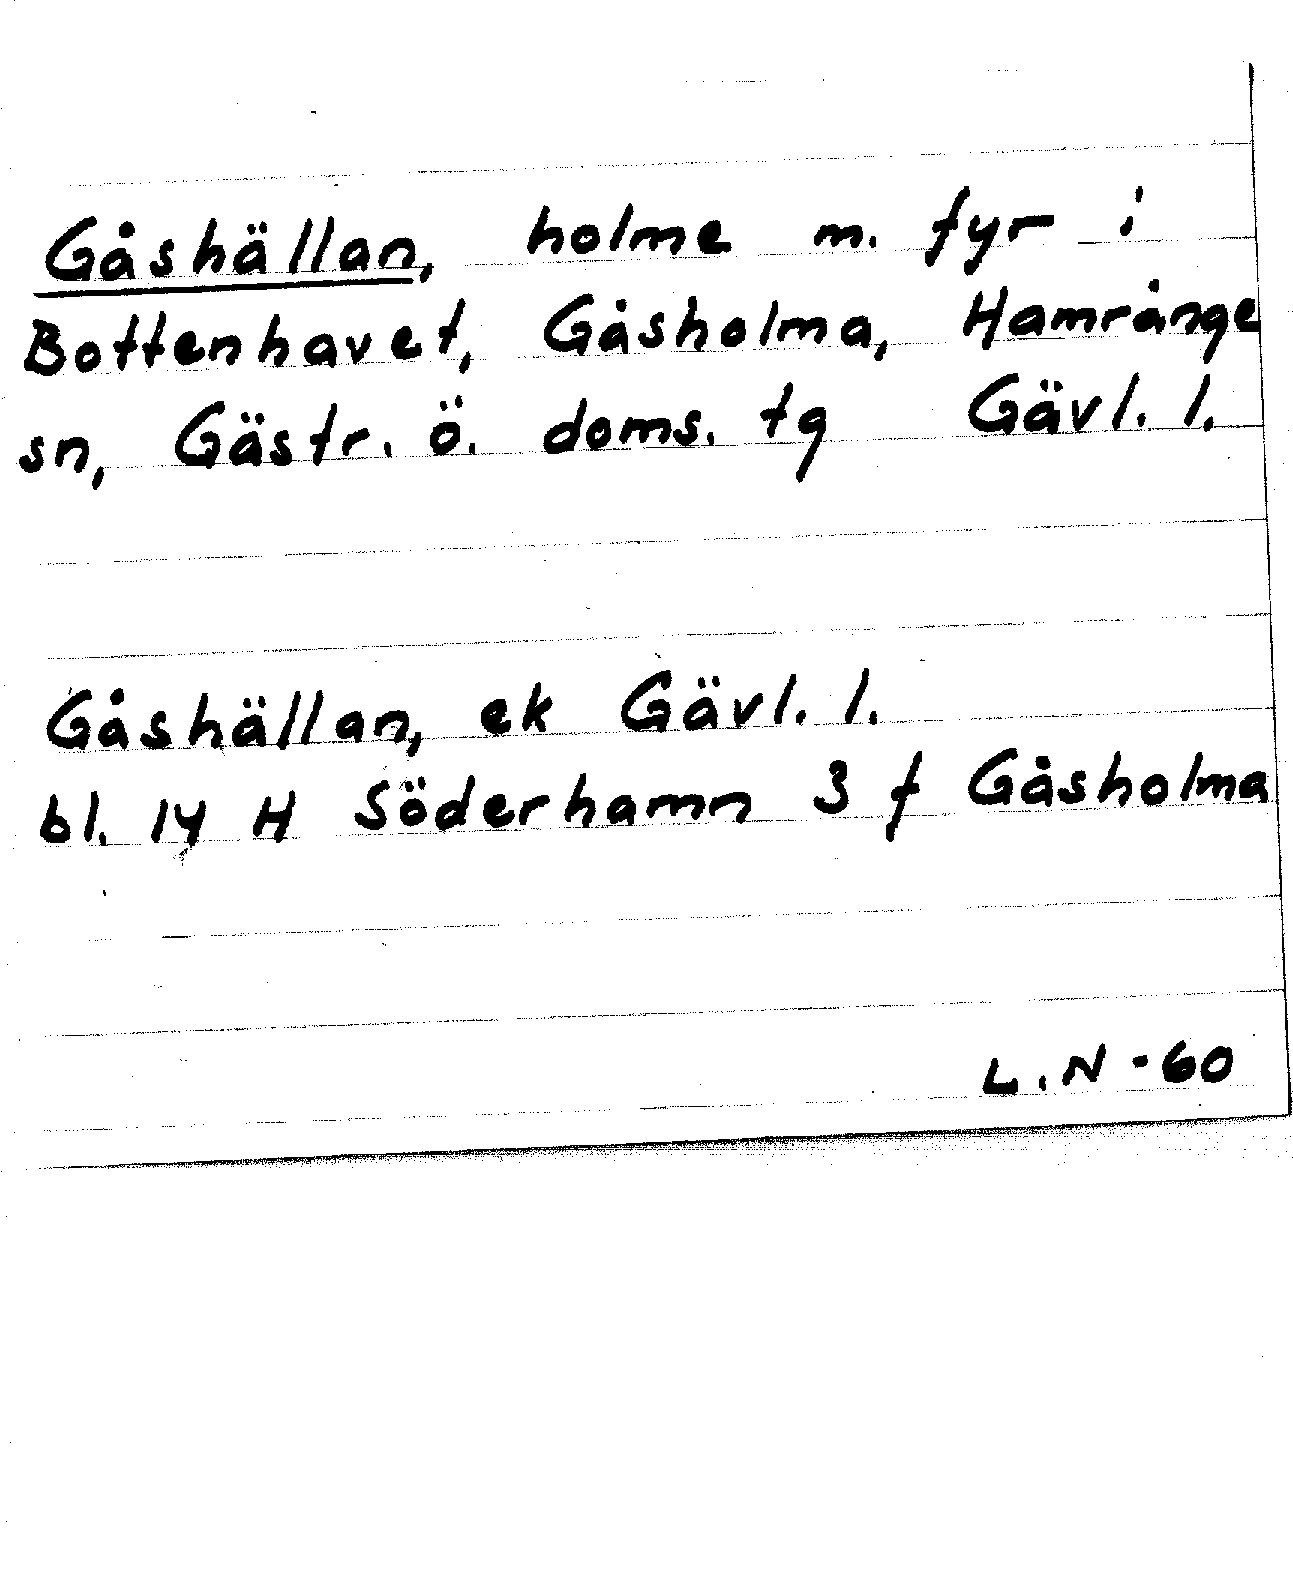 Gåshällan, holme m. fyr i
Bottenhavet, Gåsholma, Hamrånge
sn, Gästr. ö. doms. tg Gävl. l.
Gåshällan, ek Gävl. l.
bl. 14 H Söderhamn 3 f Gåsholma
L.N - 60